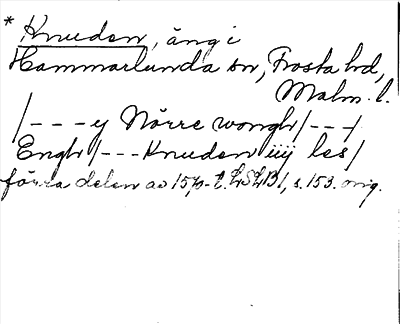 * Knuden, äng i
Hammarlunda sn, Frosta hd,
Malm. l.
/---y Nörre wongh/---/
Engh/---Knuden iiij les/
förra delen av 1570-t. LSLB1, s. 153. orig.